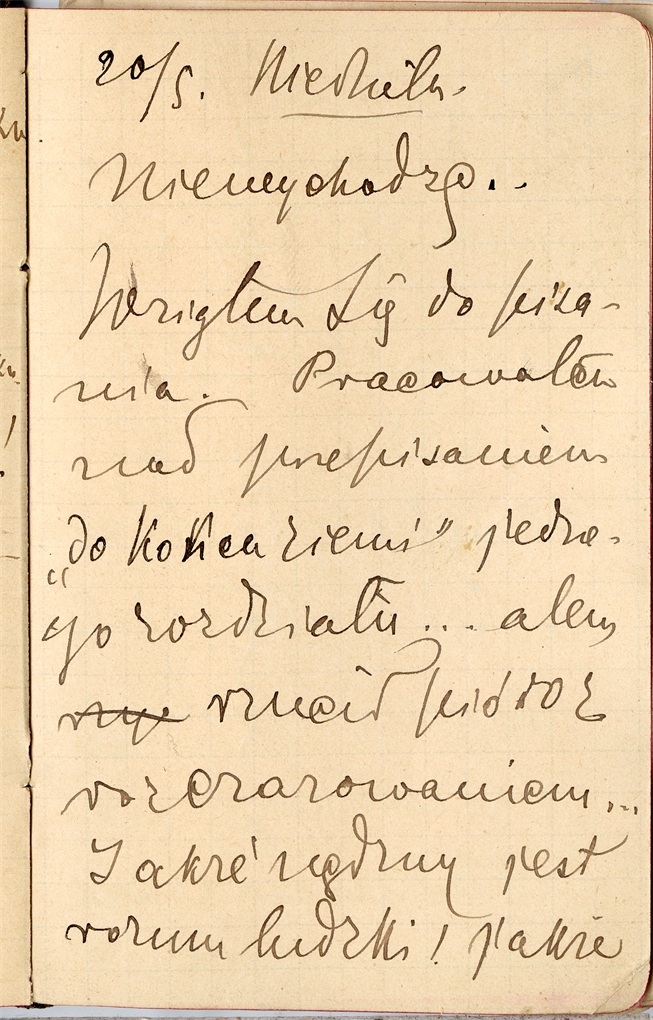 20/5. Niedziela.
Niewychodzę..
Wziąłem się do pisa-
nia. Pracowałem
nad przepisaniem
„do Końca ziemi" jedne-
go rozdziału... alem
rzucił pióro z
rozczarowaniem...
Jakże nędzny jest
rozum ludzki! jakże